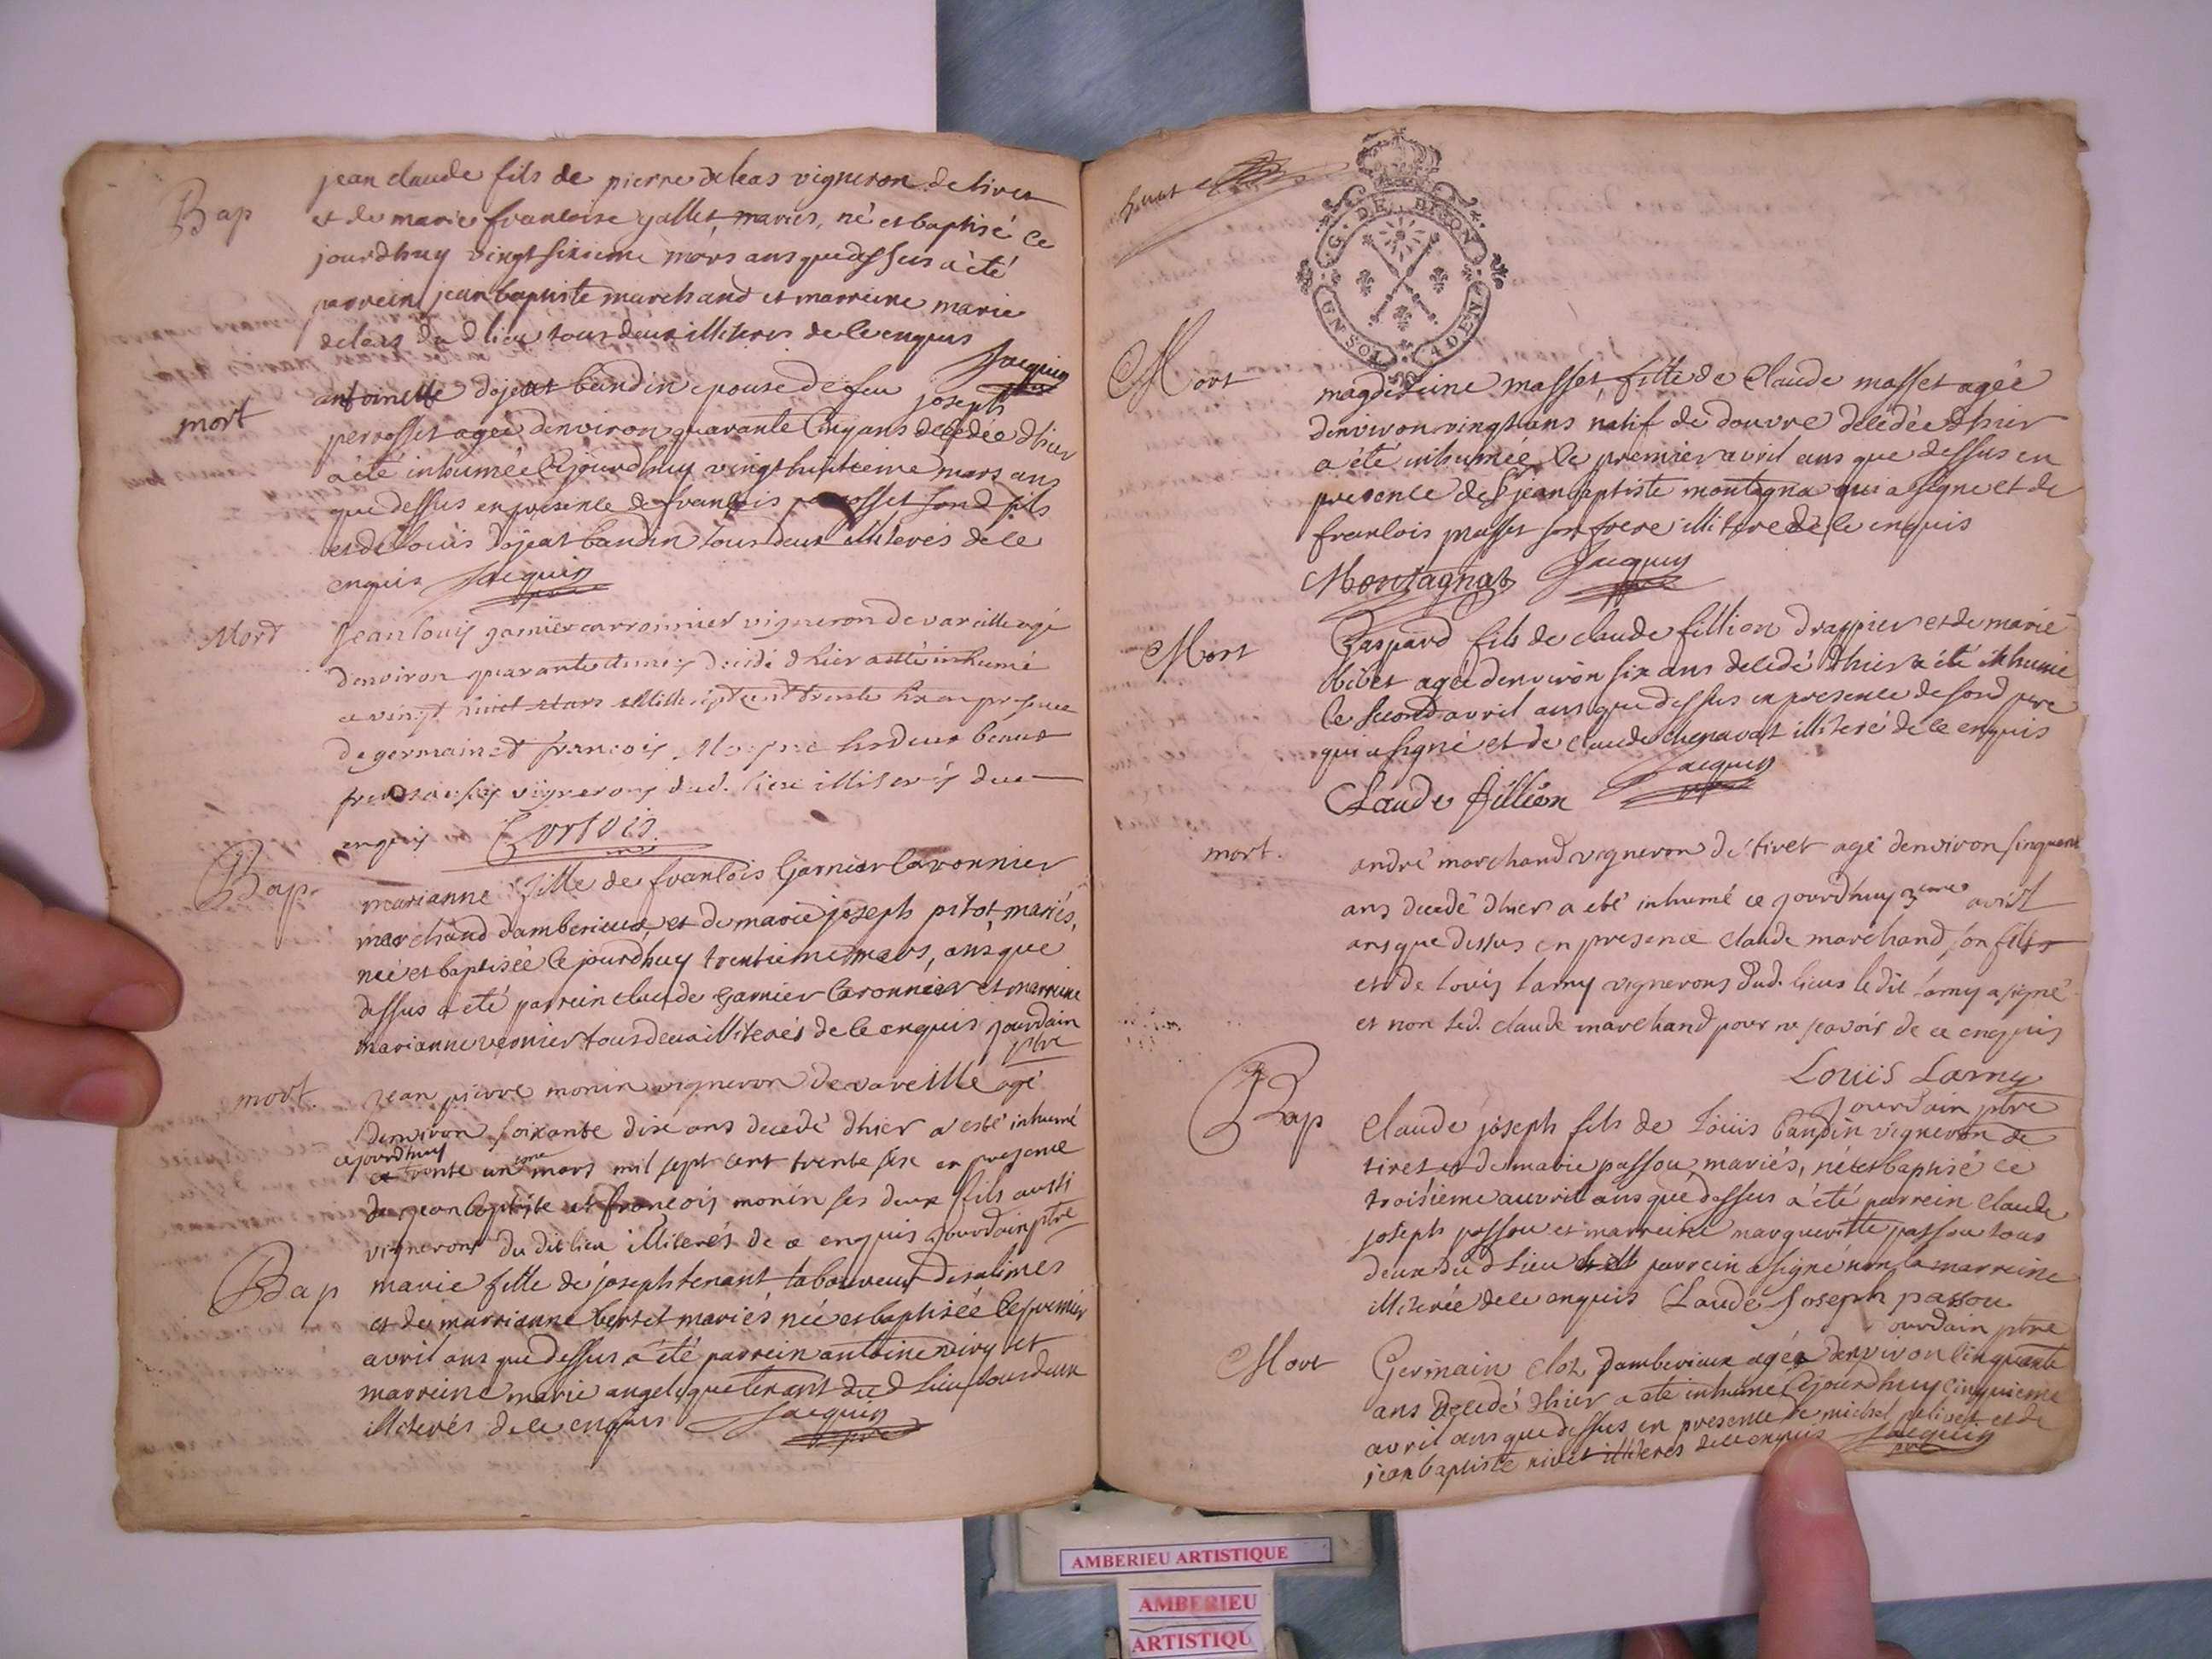 Bap
jean claude fils de pierre deleas vigneron de tiret
et de marie francoise gallet, mariés, né et baptisé ce
jourdhuy vingt sixieme mars ans que dessus a été
parrein jean baptiste marchand et marreine marie
deleas du d lieu tous deux illiteres de ce enquis
Jacquin
mort
antoinette dojeat baudin epouse de feu joseph
perrosset agée denviron quarante cinq ans decedée dhier
a été inhumée ce jourdhuy vingt huitieme mars ans
que dessus en presence de francois perrosset sond fils
et de louis dojeat baudin tous deux illiterés de ce
enquis Jacquin
Mort
Jean louis garnier carronnier vigneron de vareille agé
denviron quarante decedé dhier a été inhumé
ce vingt huict mars mille sept cent trente six en presence
de germain et francois ses deux beaux
freres aussy vignerons dud. lieu illiterés de ce
enquis
Bap
marianne fille de francois Garnier Caronnier
marchand damberieux et de marie joseph pitot mariés,
née et baptisée ce jourdhuy trentieme mars, ans que
dessus a été parrein claude Garnier Caronnier et marreine
marianne vernier tous deux illiterés de ce enquis jourdain
ptre
mort.
jean pierre monin vigneron de vareille agé
denviron soixante dix ans decedé dhier a esté inhumé
cejourdhuy
trente un eme mars mil sept cent trente six en presence
de jean baptiste et francois monin ses deux fils aussi
vignerons du dit lieu illiterés de ce enquis jourdain ptre
Bap
marie fille de joseph tenant laboureur des alimes
et de marrianne bertet mariés née et baptisée ce premier
avril ans que dessus a été parrein antoine et
marreine marie angelique tenant du d lieu tous deux
illiterés de ce enquis Jacquin
G. DE. DIJON
UN SOL 4 DEN
Mort
magdeleine masset, fille de Claude masset agée
denviron vingt ans natif de douvre decedée dhier
a été inhumée le premier avril ans que dessus en
presence de jean baptiste montagna qui a signe et de
francois masset son frere illitere de ce enquis
Montagnat Jacquin
Mort
Gaspard fils de claude fillion drappier et de marie
bibet agée denviron six ans decedé dhier a été inhumé
le second avril ans que dessus en presence de sond pere
qui a signé et de claude chenavat illiteré de ce enquis
Claude fillion Jacquin
mort.
andré marchand vigneron de tiret agé denviron sinquent
ans decedé dhier a eté inhumé ce jourdhuy 3eme avril
ans que dessus en presence claude marchand son fils
et de louis lamy vignerons dud. lieus ledit lamy a signé
et non led. claude marchand pour ne scavoir de ce enquis
Louis Lamy
jourdain ptre
Bap
Claude joseph fils de Louis baudin vigneron de
tiret et de marie passou, mariés, né et baptisé ce
troisieme auvril ans que dessus a été parrein Claude
joseph passou et marreine marguerite passou tous
deux du d lieu parrein a signé non la marreine
illiterée de ce enquis Claude Joseph passou
jourdain ptre
Mort
Germain clot, damberieux agée denviron cinquante
ans decedé dhier a été inhumé ce jourdhuy cinquieme
avril ans que dessus en presence de michel et de
jean baptiste nivet illiteres de ce enquis Jacquin
AMBERIEU ARTISTIQUE
AMBERIEU
ARTISTIQU